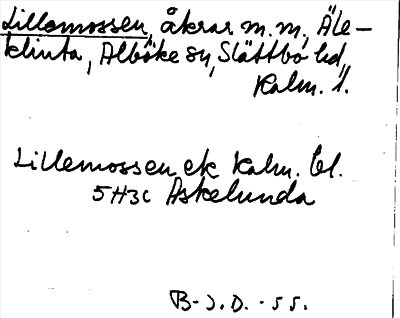 Lillemossen, åkrar m.m., Äle-
klinta, Alböke sn, Slättbo hd,
Kalm. l.
Lillemossen ek Kalm. bl.
5H3c Askelunda
B-J.D. -55.